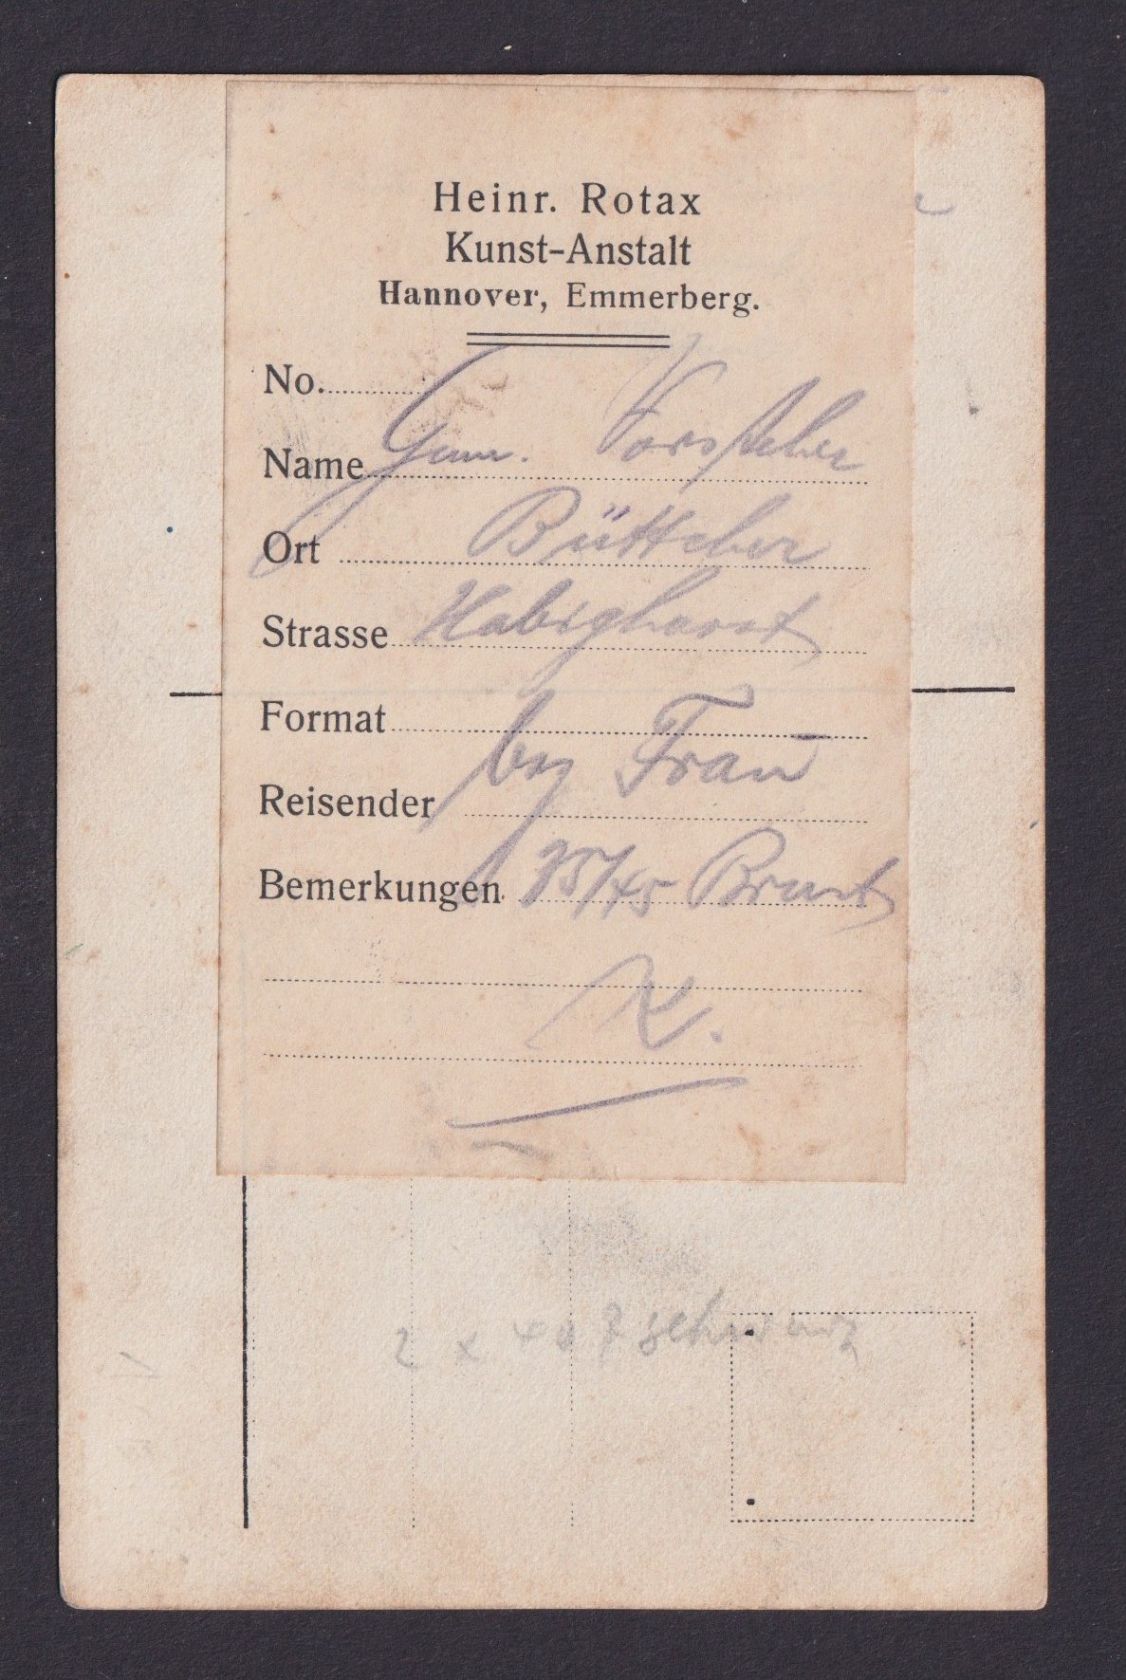 Heinr. Rotax
Kunst-Anstalt
Hannover, Emmerberg.
No.
Name Gem. Vorsteher
Ort Büttcher
Strasse Habighorst
Format
bez Frau
Reisender
Bemerkungen 35/45 Brust
2 x 407 schwarz